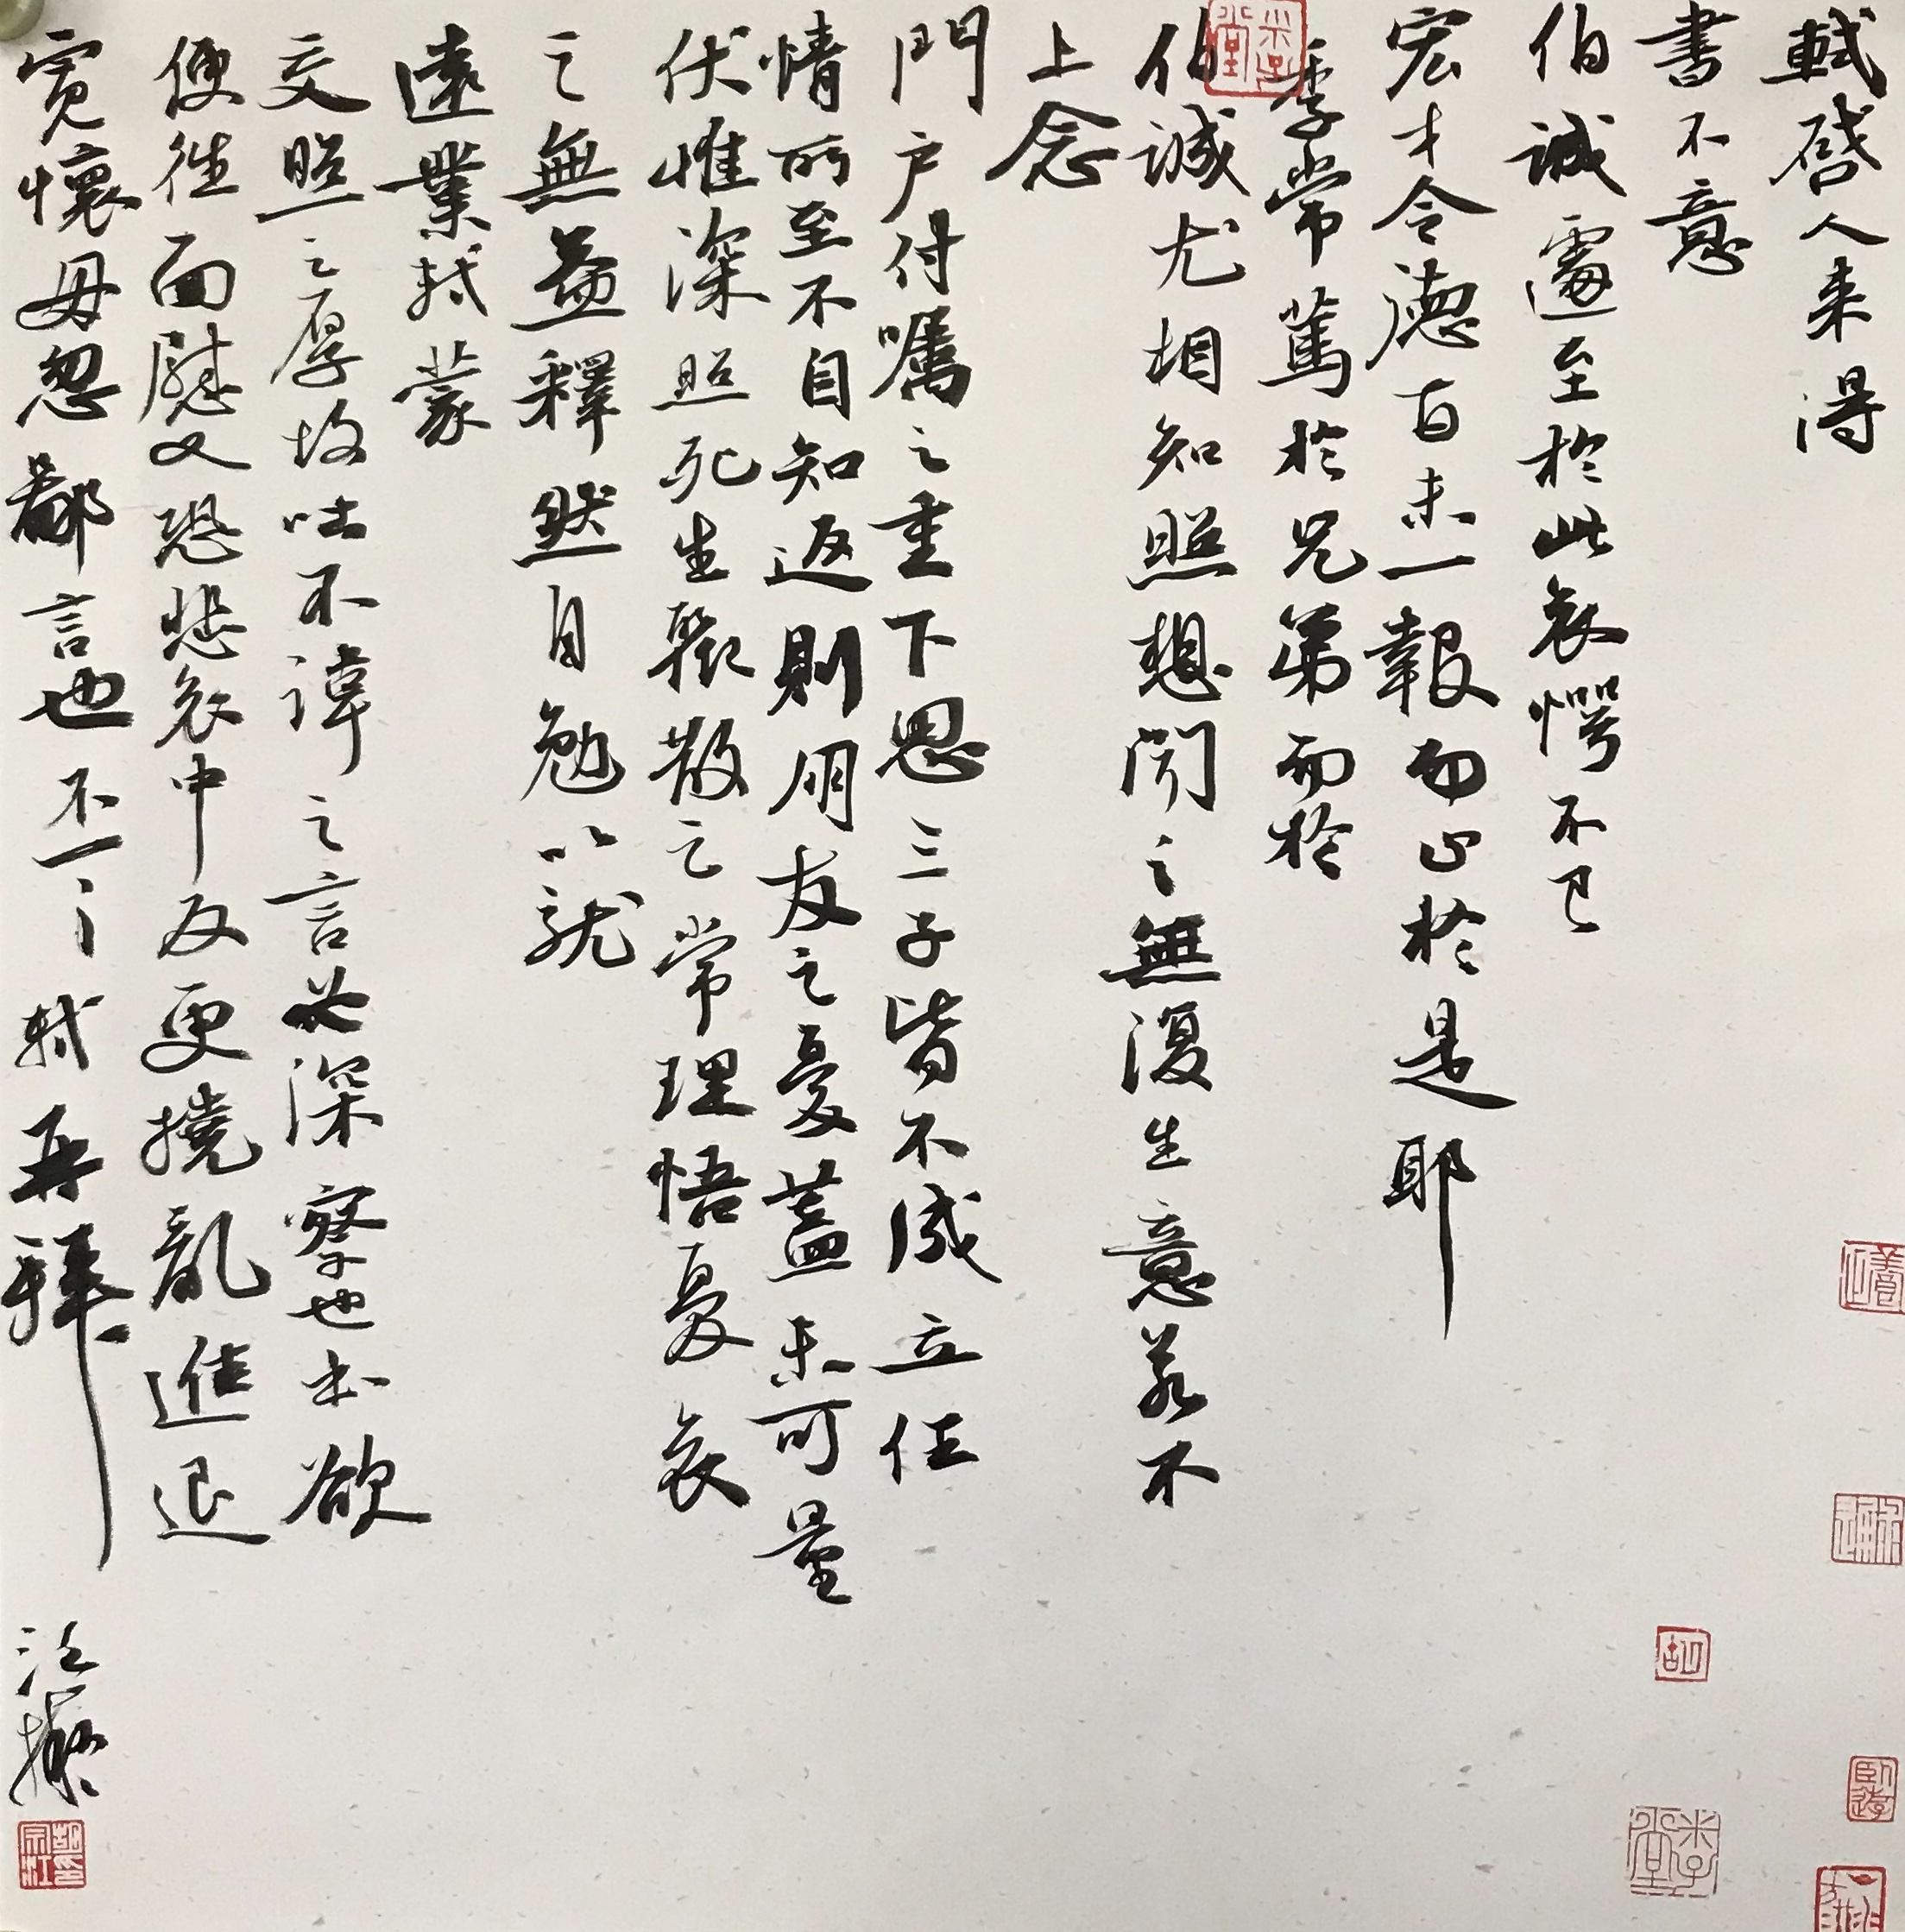 軾啓人来得
書不意
伯誠遽至於此哀愕不已
宏才令德百未一報而止於是耶
季常篤於兄弟而於
伯誠尤相知照想聞之無復生意若不
上念
門户付囑之重下思三子皆不成立任
情所至不自知返則朋友之憂蓋未可量
伏惟深照死生聚散之常理悟憂哀
之無益釋然自勉以就
遠業軾蒙
交照之厚故吐不諱之言必深察也本欲
便往面慰又恐悲哀中反更撓亂進退
寬懷毋忽鄙言也不一一軾再拜
江擬
臥遊